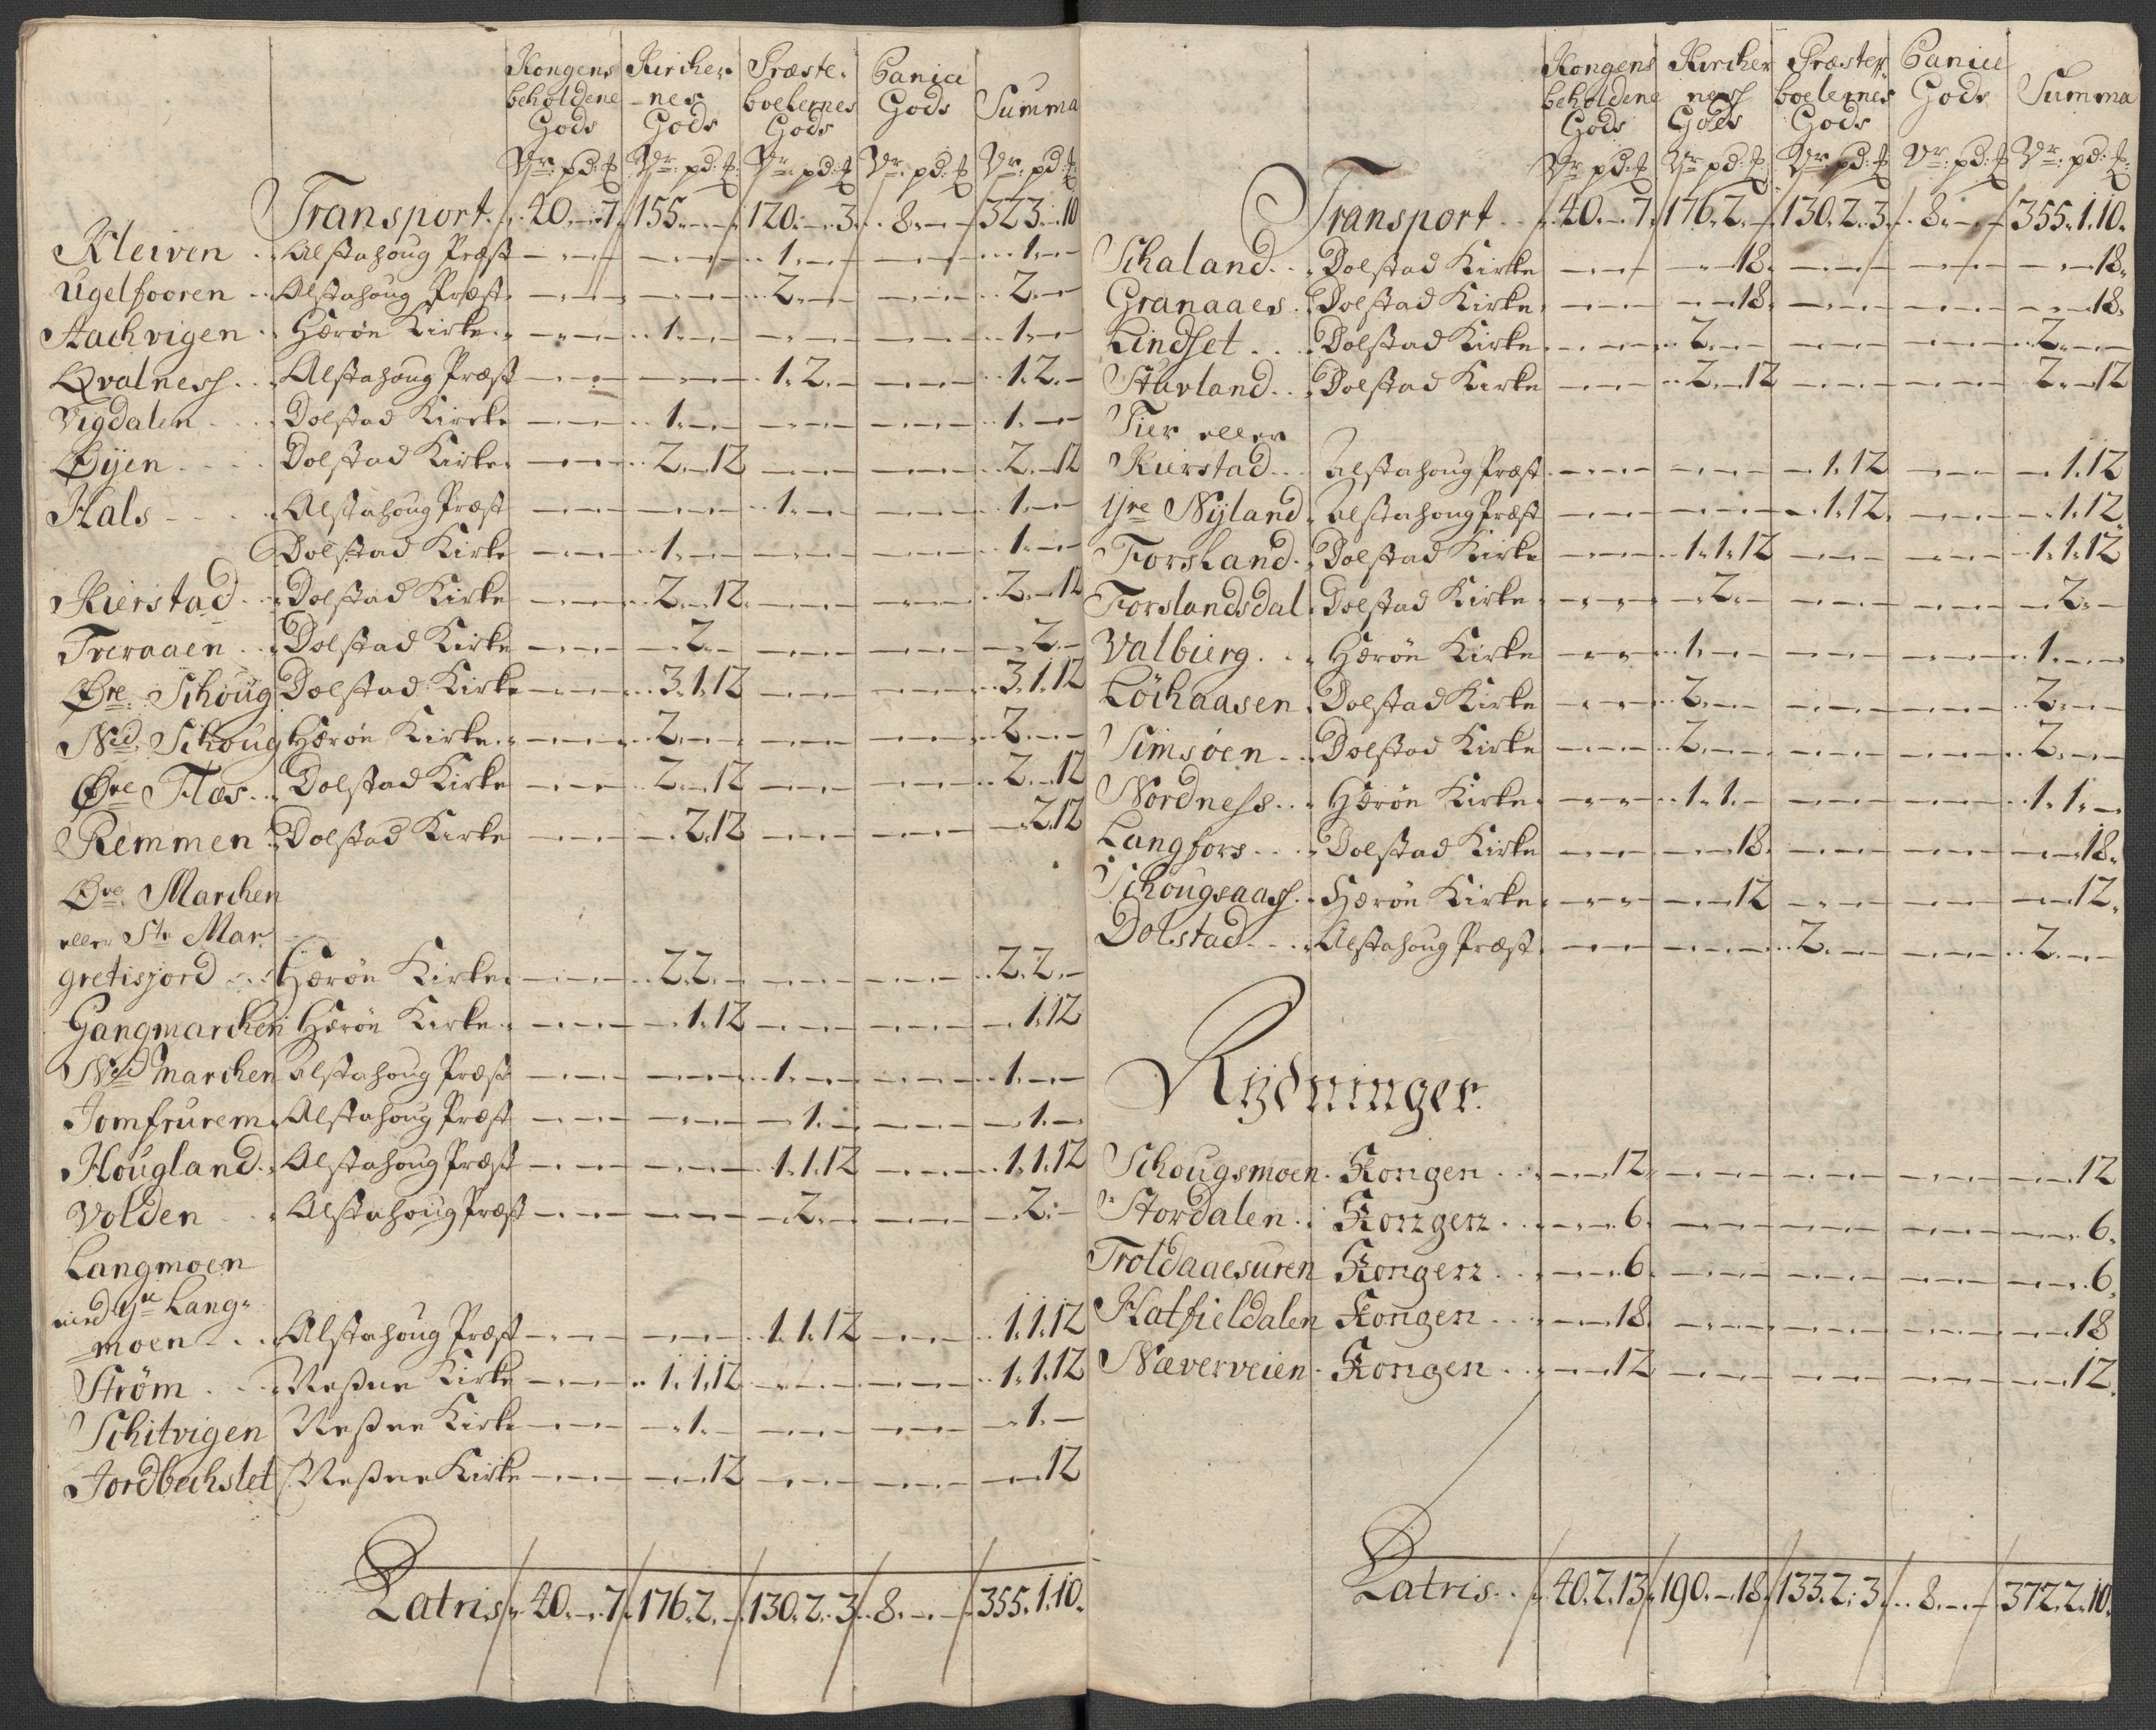 Kongens Kircher- Præste- Canicè Summa
beholdene -nes boelernes Gods
Gods Gods Gods
Vr: pd: Vr: pd: Vr: pd: Vr: pd: Vr: pd:
Transport. 40.-.7. 155.-.- 120.-.3. 8.-.- 323.-.10
Kleiven .. Alstahoug Præst -.-.- -.-.- 1.-.- -.-.- 1.-.-
Ugelfooren .. Alstahoug Præst. -.-.- -.-.- 2.-.- -.-.- 2.-.-
Hachvigen . Herøn Kirke. -.-.- 1.-.- -.-.- -.-.- 1.-.-
Qvalness .. Alstahoug Præst -.-.- -.-.- 1.2.- -.-.- 1.2.-
Vigdalen .. Dolstad Kircke -.-.- 1.-.- -.-.- -.-.- 1.-.-
Øyen .... Dolstad Kirke. -.-.- 2.-.12 -.-.- -.-.- 2.-.12
Hals ... Alstahoug Præst -.-.- -.-.- 1.-.- -.-.- 1.-.-
Dolstad Kirke -.-.- 1.-.- -.-.- -.-.- 1.-.-
Kierstad .. Dolstad Kirke -.-.- 2.-.12. -.-.- -.-.- 2.-.12
Treraaen .. Dolstad Kirke -.-.- -.2.- -.-.- -.-.- -.2.-
Øre. Schoug Dolstad Kirke -.-.- 3.1.12 -.-.- -.-.- 3.1.12
Ned. Schoug Herøn Kirke. -.-.- 2.-.- -.-.- -.-.- 2.-.-
Øre Flæs .. Dolstad Kirke -.-.- 2.-.12 -.-.- -.-.- 2.-.12
Remmen . Dolstad Kirke -.-.- -.2.12 -.-.- -.-.- -.2.12
Øre. Marchen
eller Ste Mar
gretisjord .. Herøn Kirke. -.-.- 2.2.- -.-.- -.-.- 2.2.-
Gangmarchen Herøn Kirke. -.-.- -.1.12 -.-.- -.-.- -.1.12
Ned Marchen Alstahoug Præst -.-.- -.-.- 1.-.- -.-.- 1.-.-
Jomfrurem. Alstahoug Præst -.-.- -.-.- -.1.- -.-.- -.1.-
Hougland. Alstahoug Præst -.-.- -.-.- 1.1.12 -.-.- 1.1.12
Volden .. Alstahoug Præst -.-.- -.-.- -.2.- -.-.- -.2.-
Langmoen
med Yre Lang-
moen .. Alstahoug Præst -.-.- -.-.- 1.1.12 -.-.- 1.1.12
Strøm ... Nessne Kirke -.-.- 1.1.12 -.-.- -.-.- 1.1.12
Schitvigen Nessne Kirke -.-.- -.1.- -.-.- -.-.- -.1.-
Jordbechslet Nessne Kirke -.-.- -.-.12 -.-.- -.-.- -.-.12
Latris. 40.-.7. 176.2.- 130.2.3 8.-.- 355.1.10.
Kongens Kircher Præster- Canicè Summa
beholdene ness boelernes Gods
Gods Gods Gods
Vr: pd: Vr: pd: Vr: pd: Vr: pd: Vr: pd:
Transport .. 40.-.7. 176.2.- 130.2.3. 8.-.- 355.1.10.
Schaland .. Dolstad Kirke -.-.- -.-.18. -.-.- -.-.- -.-.18.
Granaaes . Dolstad Kirke. -.-.- -.-.18. -.-.- -.-.- -.-.18.
Lindset .. Dolstad Kirke. -.-.- 2.-.- -.-.- -.-.- 2.-.-
Stavland .. Dolstad Kirke -.-.- 2.-.12 -.-.- -.-.- 2.-.12
Tier eller
Kierstad .. Alstahoug Præst. -.-.- -.-.- -.1.12 -.-.- -.1.12
Yre Nyland. Alstahoug Præst -.-.- -.-.- -.1.12. -.-.- -.1.12.
Forsland .. Dolstad Kirke -.-.- 1.1.12 -.-.- -.-.- 1.1.12
Forslandsdal Dolstad Kirke. -.-.- -.2.- -.-.- -.-.- -.2.-
Valbierg .. Herøn Kirke -.-.- 1.-.- -.-.- -.-.- 1.-.-
Löchaasen . Dolstad Kirke -.-.- 2.-.- -.-.- -.-.- 2.-.-
Simsöen .. Dolstad Kirke -.-.- 2.-.- -.-.- -.-.- 2.-.-
Nordness .. Herøn Kirke. -.-.- 1.1.- -.-.- -.-.- 1.1.-
Langfors .. Dolstad Kirke -.-.- -.-.18. -.-.- -.-.- -.-.18.
Schougsaass . Herøn Kirke. -.-.- -.-.12 -.-.- -.-.- -.-.12.
Dolstad ... Alstahoug Præst. -.-.- -.-.- 2.-.- -.-.- 2.-.-
Rydninger.
Schougsmoen. Kongen ... -.-.12. -.-.- -.-.- -.-.- -.-.12
Stordalen .. Kongen ... -.-.6. -.-.- -.-.- -.-.- -.-.6.
Troldaaesuren Kongen ... -.-.6. -.-.- -.-.- -.-.- -.-.6.
Hatfieldalen Kongen ... -.-.18. -.-.- -.-.- -.-.- -.-.18
Næverveien . Kongen ... -.-.12 -.-.- -.-.- -.-.- -.-.12.
Latris .. 40.2.13. 190.-.18. 133.2.3. 8.-.- 372.2.10.